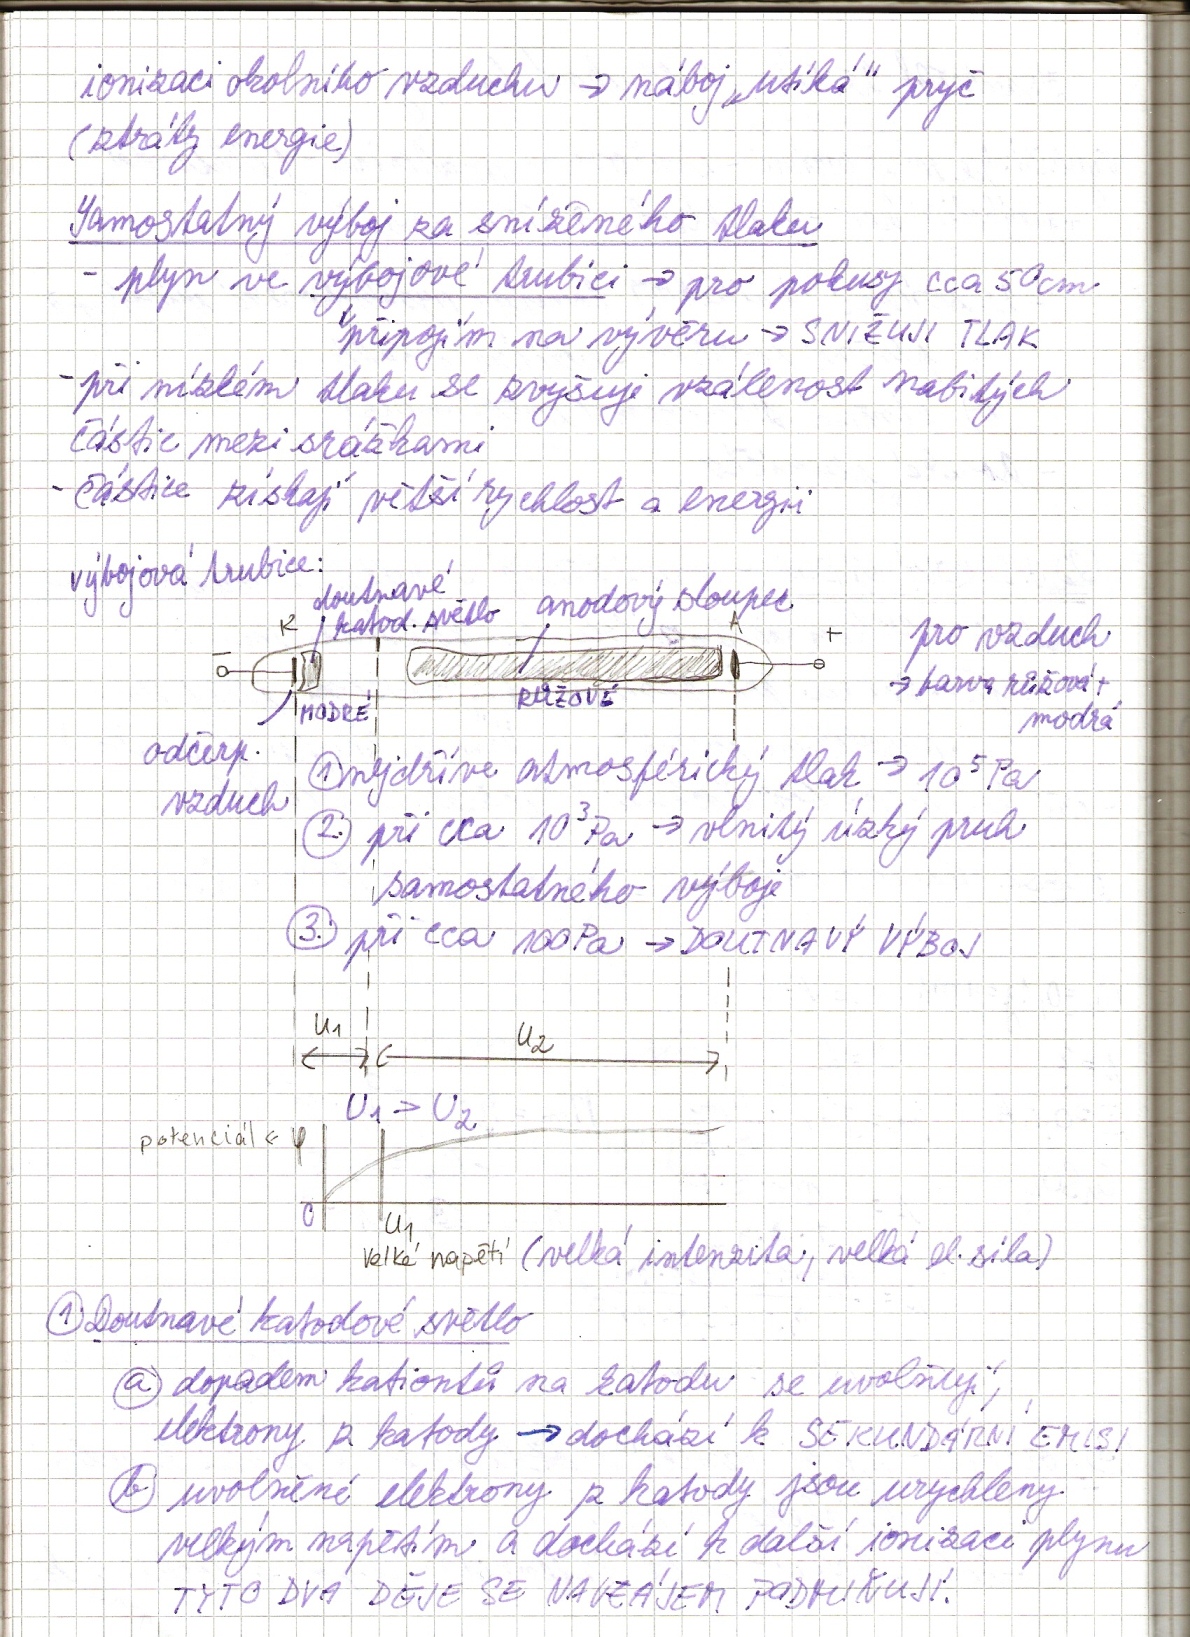 ionizaci okolního vzduchu → náboj „utíká“ pryč
(ztráty energie)
Samostatný výboj za sníženého tlaku
- plyn ve výbojové trubici → pro pokusy cca 50cm
připojím na vývěvu → SNIŽUJI TLAK
- při nízkém tlaku se zvyšuje vzálenost nabitých
částic mezi srážkami
- částice získají větší rychlost a energii
výbojová trubice:
doutnavé
katod. světlo
anodový sloupec
K
A
-
+
MODRÉ
RŮŽOVÉ
pro vzduch
→ barva růžová +
modrá
odčerp.
vzduch
① nejdříve atmosférický tlak → 10⁵ Pa
②. při cca 10³ Pa → vlnitý úzký pruh
samostatného výboje
③. při cca 100Pa → DOUTNAVÝ VÝBOJ
U₁
U₂
U₁ > U₂
potenciál ← φ
0
U₁
velké napětí (velká intenzita, velká el. síla)
① Doutnavé katodové světlo
ⓐ dopadem kationtů na katodu se uvolňují
elektrony z katody → dochází k SEKUNDÁRNÍ EMISI
ⓑ uvolněné elektrony z katody jsou urychleny
velkým napětím a dochází k další ionizaci plynu
TYTO DVA DĚJE SE NAVZÁJEM PODMIŇUJÍ.